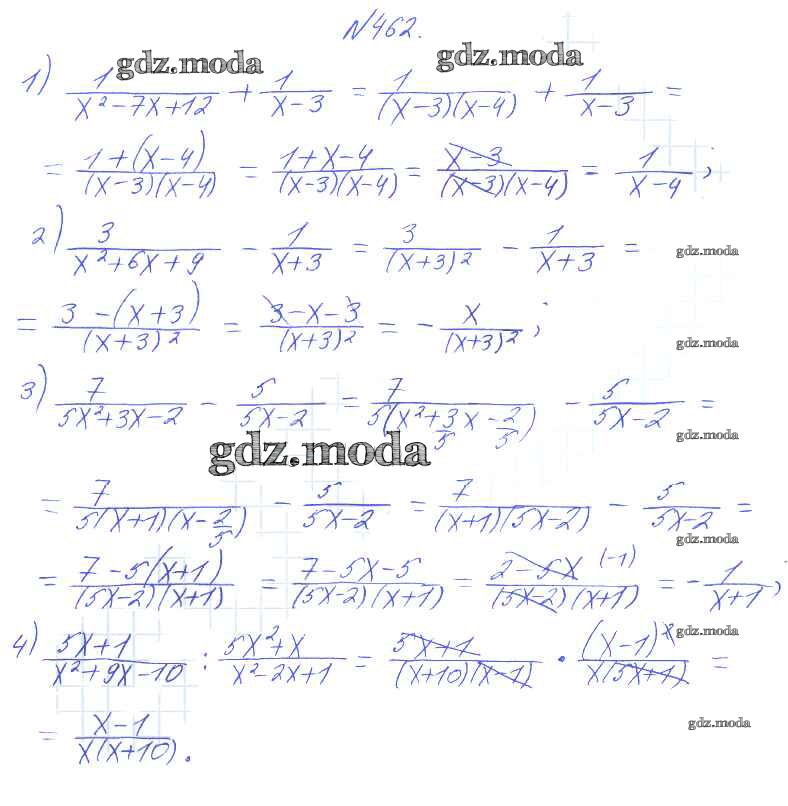 №462.
gdz.moda gdz.moda
1) 1/(x²-7x+12) + 1/(x-3) = 1/((x-3)(x-4)) + 1/(x-3) =
= (1+(x-4))/((x-3)(x-4)) = (1+x-4)/((x-3)(x-4)) = (x-3)/((x-3)(x-4)) = 1/(x-4);
2) 3/(x²+6x+9) - 1/(x+3) = 3/(x+3)² - 1/(x+3) =
gdz.moda
= (3-(x+3))/(x+3)² = (3-x-3)/(x+3)² = - x/(x+3)²;
gdz.moda
3) 7/(5x²+3x-2) - 5/(5x-2) = 7/(5(x²+3/5x-2/5)) - 5/(5x-2) =
gdz.moda
gdz.moda
= 7/(5(x+1)(x-2/5)) - 5/(5x-2) = 7/((x+1)(5x-2)) - 5/(5x-2) =
gdz.moda
= (7-5(x+1))/((5x-2)(x+1)) = (7-5x-5)/((5x-2)(x+1)) = (2-5x (-1))/((5x-2)(x+1)) = - 1/(x+1);
gdz.moda
4) (5x+1)/(x²+9x-10) : (5x²+x)/(x²-2x+1) = (5x+1)/((x+10)(x-1)) · (x-1)²/(x(5x+1)) =
gdz.moda
= (x-1)/(x(x+10)).